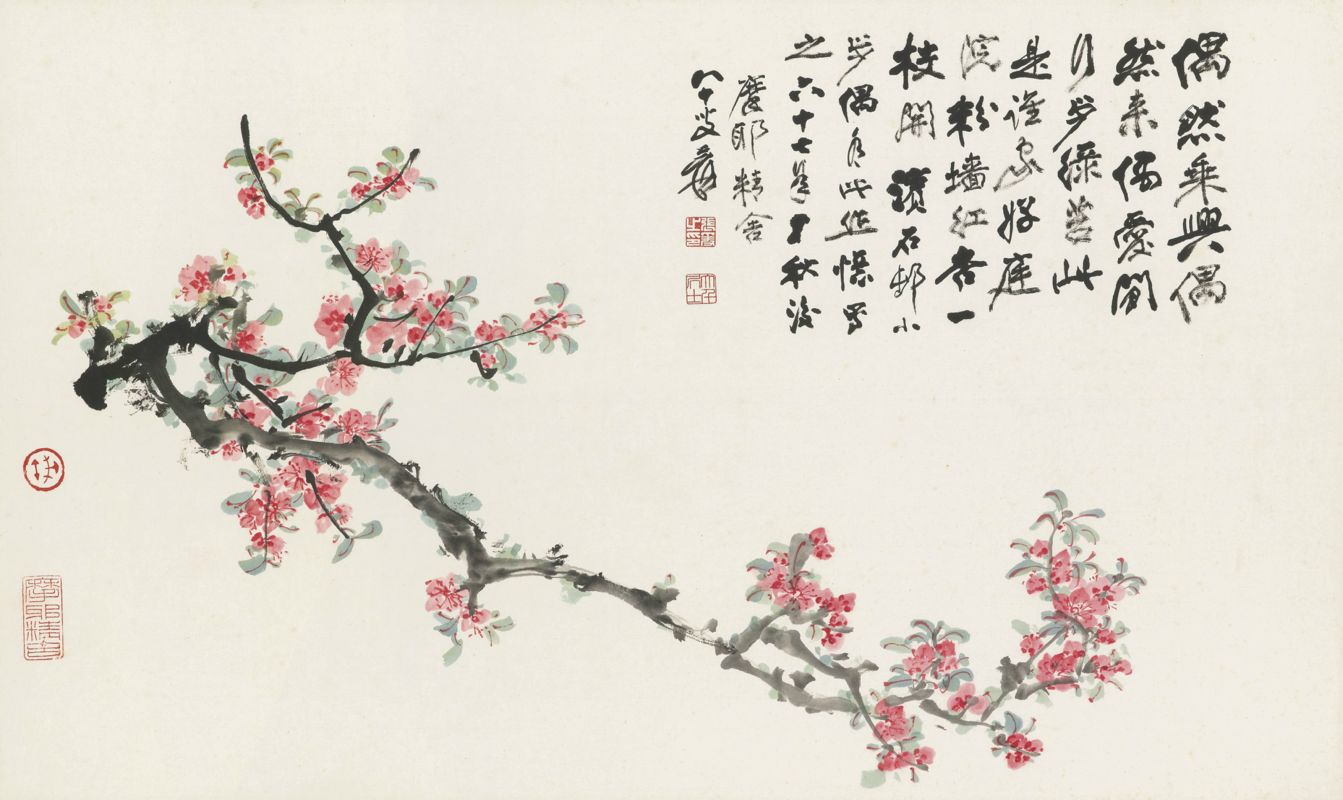 偶然乘興偶
然来偶愛閒
行步綠苔此
是誰家好庭
院粉墻紅杏一
枝開 石邨小
步偶有此作憶寫
之六十七年中秋後
摩耶精舍
八十叟爰
張爰之印
大千居士
摩耶精舍